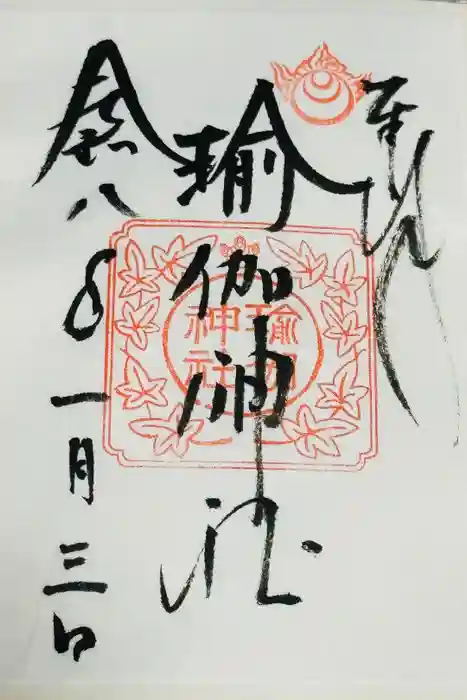 奉拝
瑜伽神社
瑜伽
神社
令和八年一月三日